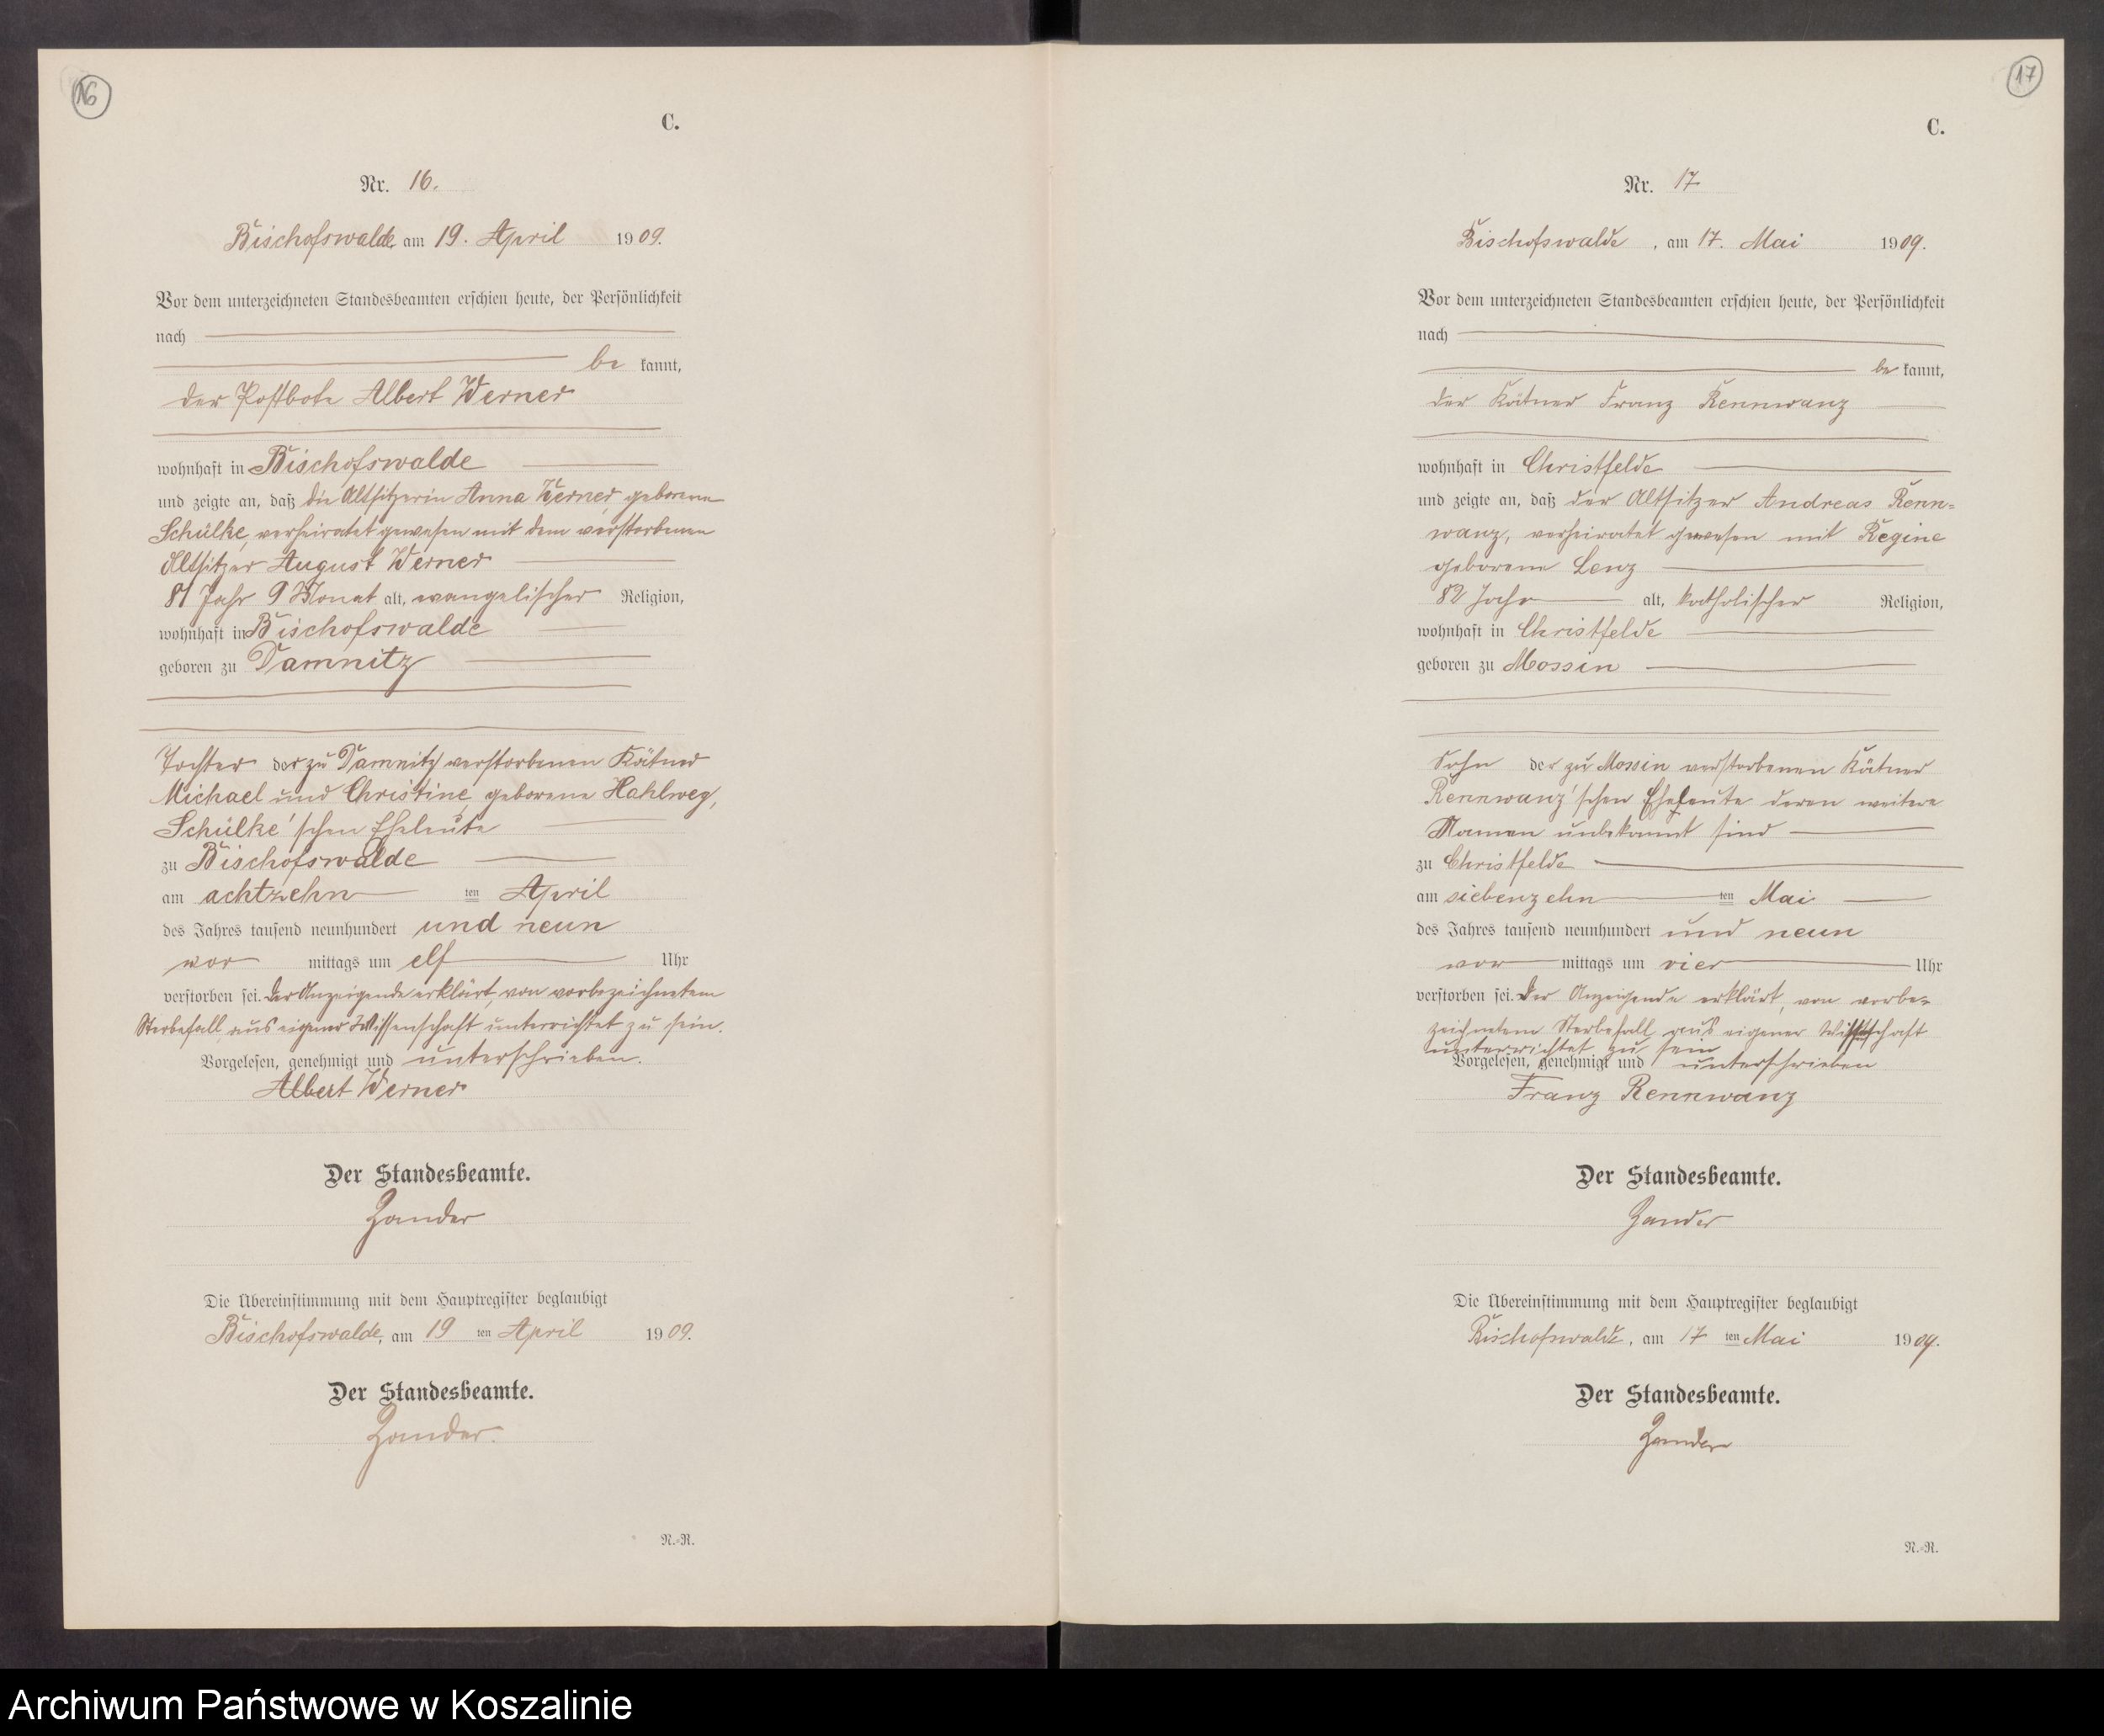 16
C.
Nr. 16.
Bischofswalde am 19. April 1909.
Vor dem unterzeichneten Standesbeamten erschien heute, der Persönlichkeit
nach
be kannt,
der Postbote Albert Werner
wohnhaft in Bischofswalde
und zeigte an, daß die Altsitzerin Anna Werner, geborene
Schülke, verheiratet gewesen mit dem verstorbenen
Altsitzer August Werner
81 Jahr 9 Monat alt, evangelischer Religion,
wohnhaft in Bischofswalde
geboren zu Damnitz
Tochter der zu Damnitz verstorbenen Kätner
Michael und Christine, geborene Hahlweg,
Schülke'schen Eheleute
zu Bischofswalde
am achtzehn ten April
des Jahres tausend neunhundert und neun
vor mittags um elf Uhr
verstorben sei. Der Anzeigende erklärt, von vorbezeichnetem
Sterbefall aus eigener Wissenschaft unterrichtet zu sein.
Vorgelesen, genehmigt und unterschrieben.
Albert Werner
Der Standesbeamte.
Zander
Die Übereinstimmung mit dem Hauptregister beglaubigt
Bischofswalde, am 19 ten April 1909.
Der Standesbeamte.
Zander.
N.-R.
17
C.
Nr. 17
Bischofswalde, am 17. Mai 1909.
Vor dem unterzeichneten Standesbeamten erschien heute, der Persönlichkeit
nach
be kannt,
der Kätner Franz Rennwanz
wohnhaft in Christfelde
und zeigte an, daß der Altsitzer Andreas Renn-
wanz, verheiratet gewesen mit Regine
geborene Lenz
82 Jahr alt, katholischer Religion,
wohnhaft in Christfelde
geboren zu Mossin
Sohn der zu Mossin verstorbenen Kätner
Rennwanz'schen Eheleute deren weitere
Namen unbekannt sind
zu Christfelde
am siebenzehn ten Mai
des Jahres tausend neunhundert und neun
vor mittags um vier Uhr
verstorben sei. Der Anzeigende erklärt, von vorbe-
zeichnetem Sterbefall aus eigener Wissenschaft
unterrichtet zu sein
Vorgelesen, genehmigt und unterschrieben
Franz Rennwanz
Der Standesbeamte.
Zander
Die Übereinstimmung mit dem Hauptregister beglaubigt
Bischofswalde, am 17 ten Mai 1909.
Der Standesbeamte.
Zander
N.-R.
Archiwum Państwowe w Koszalinie